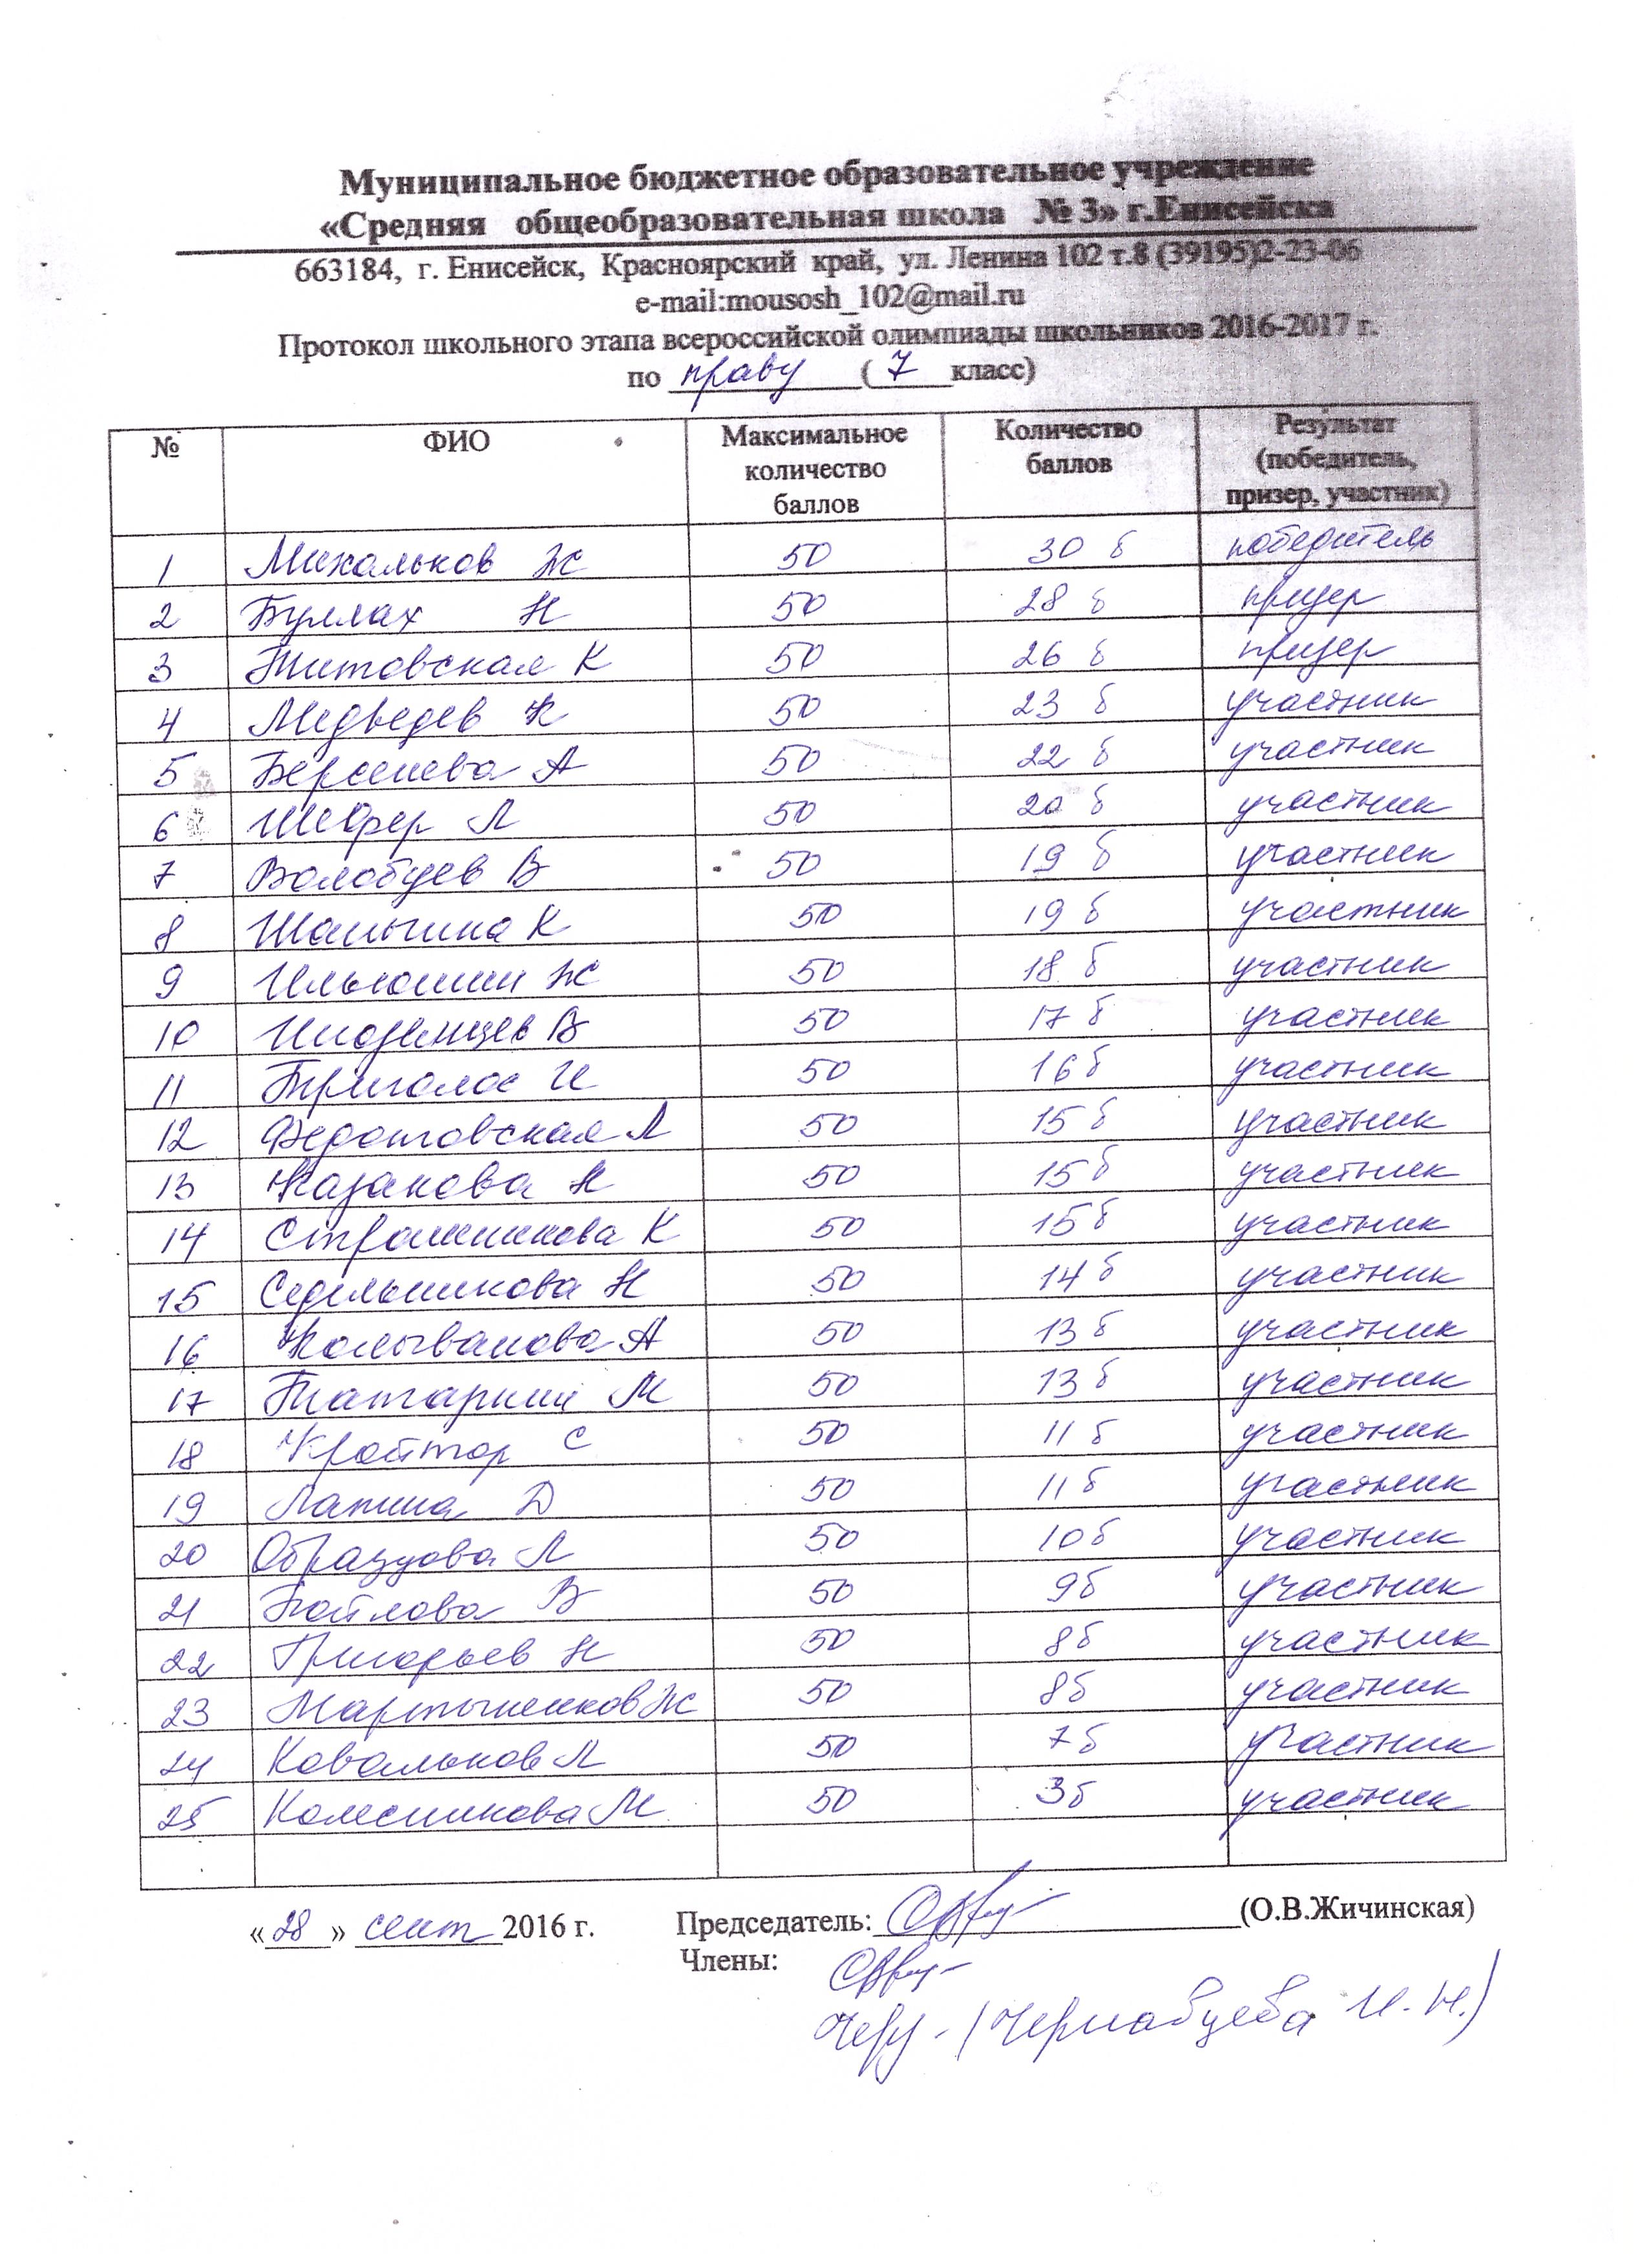 Муниципальное бюджетное образовательное учреждение
«Средняя общеобразовательная школа № 3» г.Енисейска
663184, г. Енисейск, Красноярский край, ул. Ленина 102 т.8 (39195)2-23-06
e-mail:mousosh_102@mail.ru
Протокол школьного этапа всероссийской олимпиады школьников 2016-2017 г.
по праву ( 7 класс)
№ ФИО Максимальное количество баллов Количество баллов Результат (победитель, призер, участник)
1 Михальков Ж 50 30 б победитель
2 Буллах Н 50 28 б призер
3 Титовская К 50 26 б призер
4 Медведев К 50 23 б участник
5 Берсенева А 50 22 б участник
6 Шефер Л 50 20 б участник
7 Волобуев В 50 19 б участник
8 Шалыгина К 50 19 б участник
9 Ильюшин Ж 50 18 б участник
10 В 50 17 б участник
11 Триголос И 50 16 б участник
12 Федотовская Л 50 15 б участник
13 Казакова Н 50 15 б участник
14 Страшникова К 50 15 б участник
15 Седельникова Н 50 14 б участник
16 Колыванова А 50 13 б участник
17 Татаркин М 50 13 б участник
18 Кройтор С 50 11 б участник
19 Лапина Д 50 11 б участник
20 Образцова Л 50 10 б участник
21 В 50 9 б участник
22 Григорьев Н 50 8 б участник
23 Мартыненков Ж 50 8 б участник
24 Ковальков Л 50 7 б участник
25 Колесникова М 50 3 б участник
«28» сент 2016 г. Председатель: (О.В.Жичинская)
Члены:
(Чернавцева И.Н.)